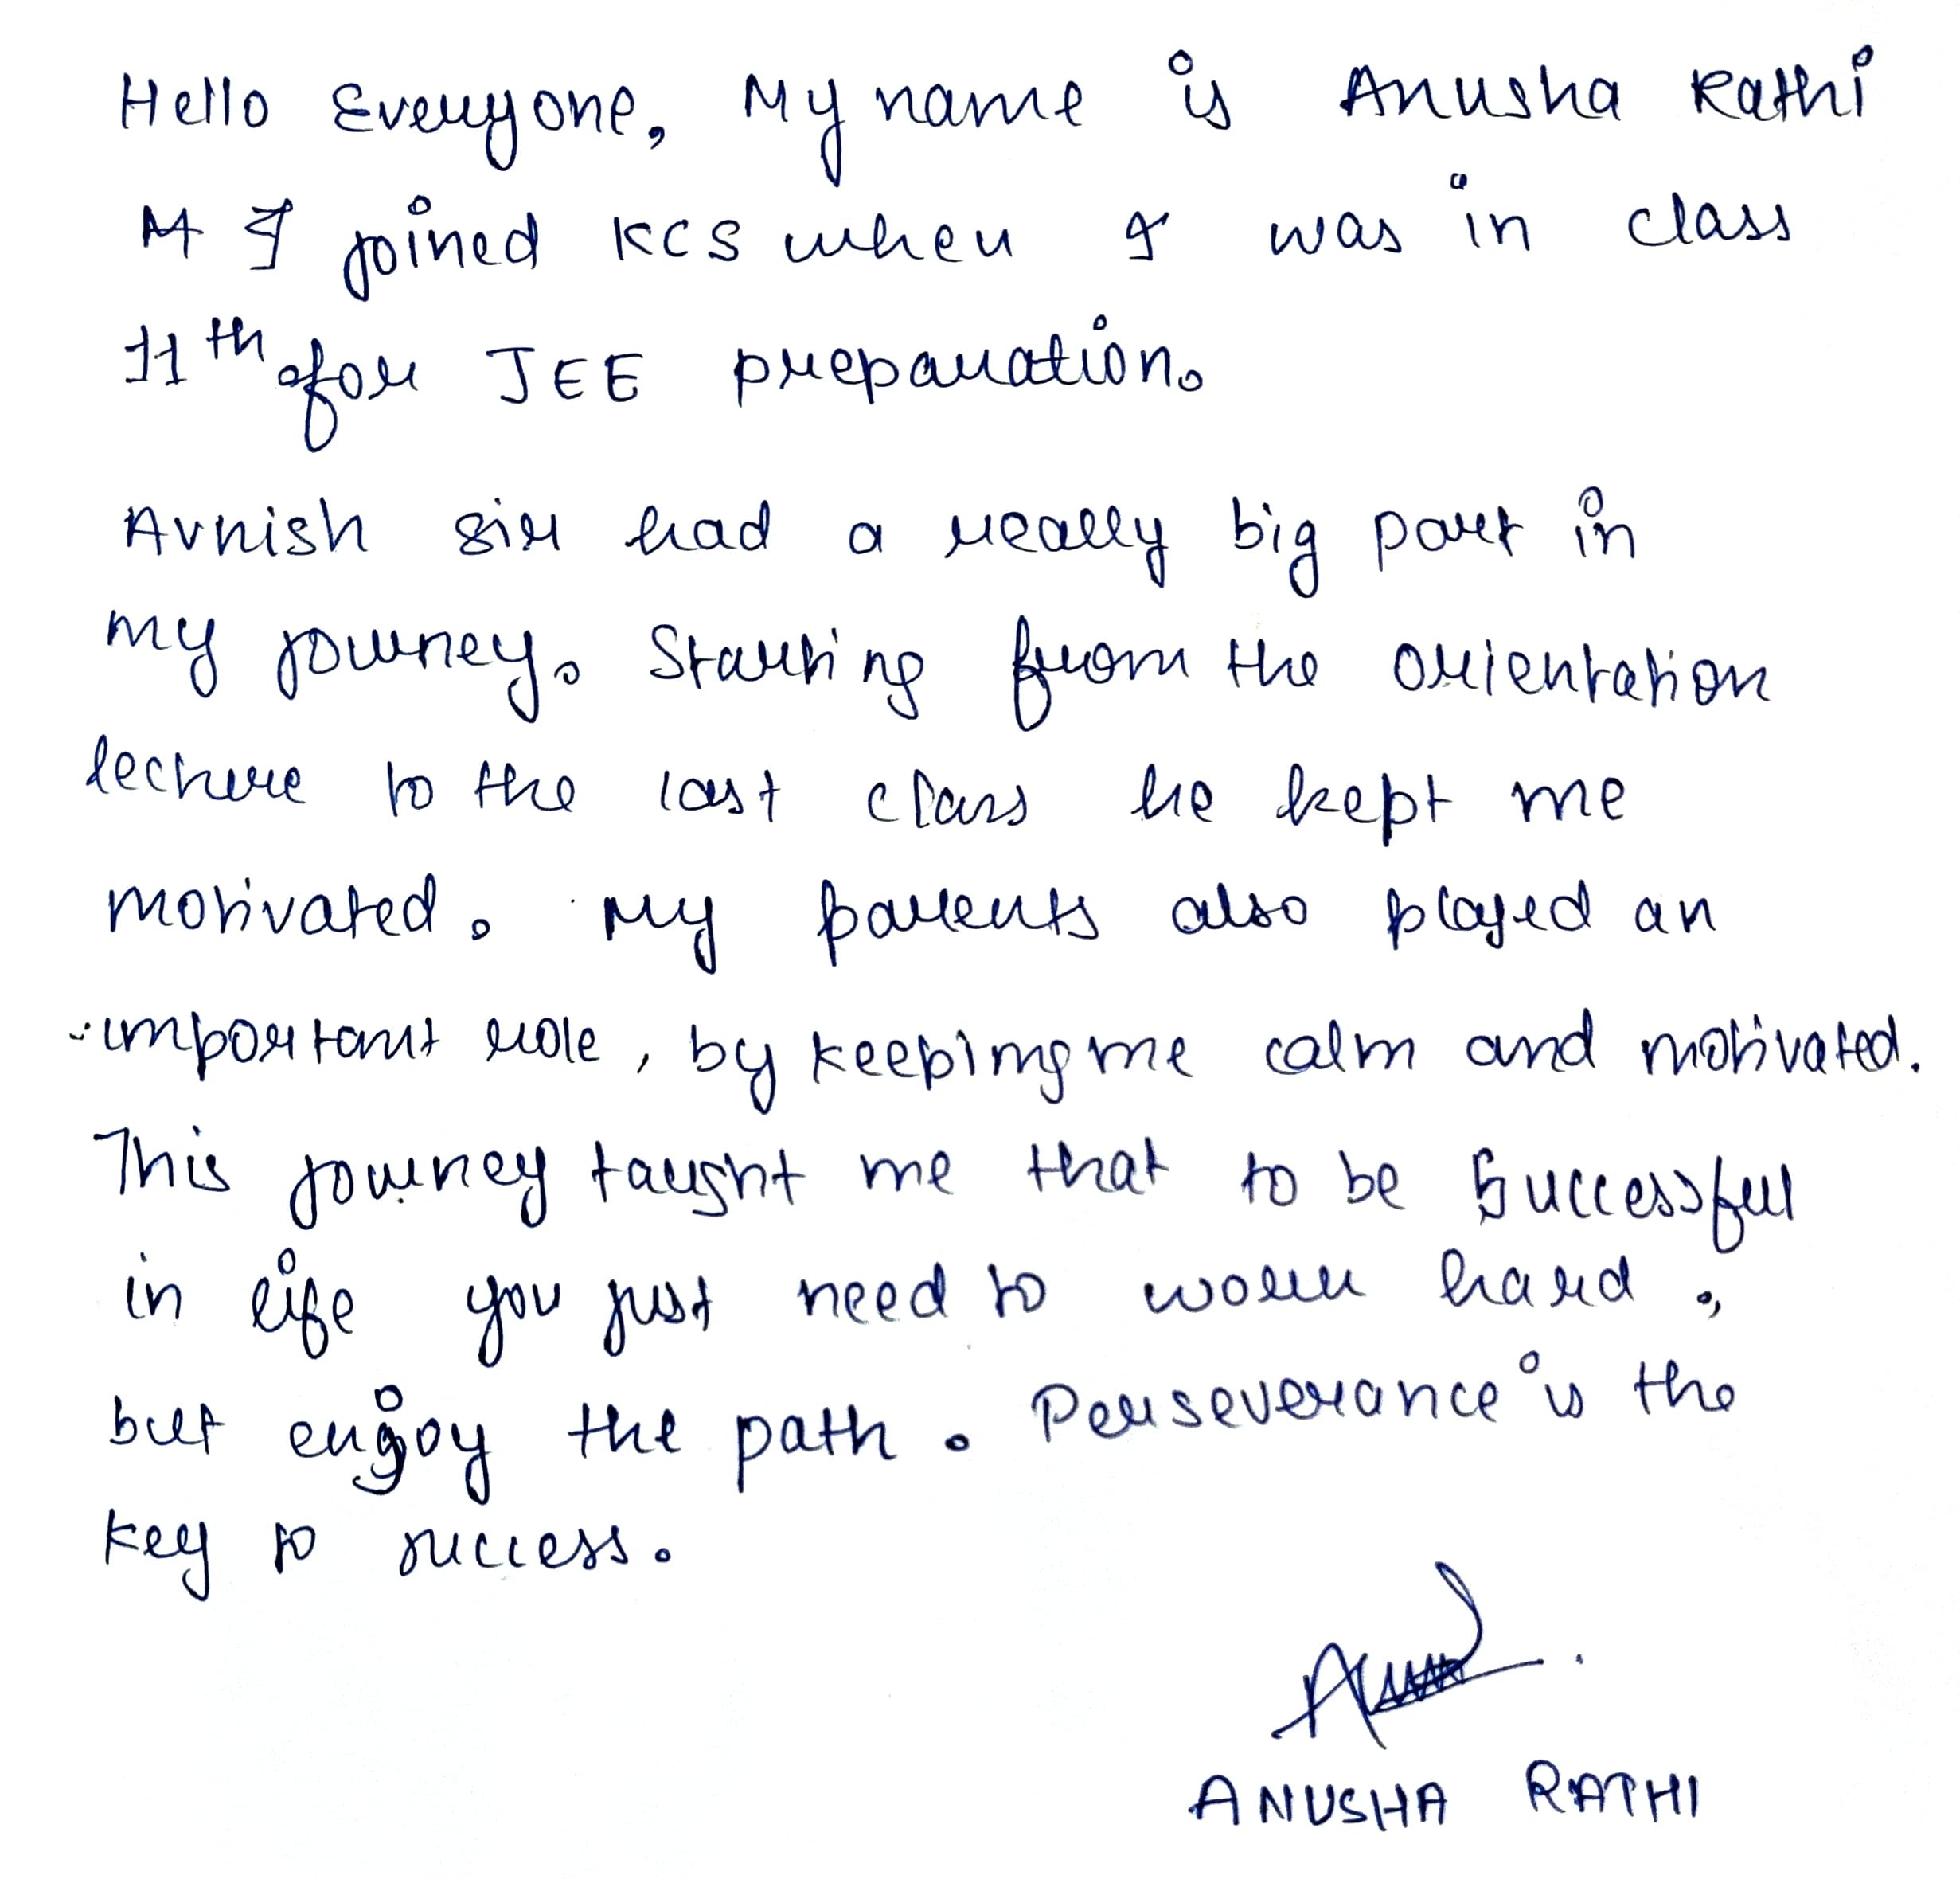 Hello Everyone, My name is Anusha Rathi
I joined KCS when I was in class
11th for JEE preparation.
Avnish sir had a really big part in
my journey. Starting from the orientation
lecture to the last class he kept me
motivated. My parents also played an
important role, by keeping me calm and motivated.
This journey taught me that to be successful
in life you just need to work hard,
but enjoy the path. Perseverance is the
key to success.
ANUSHA RATHI